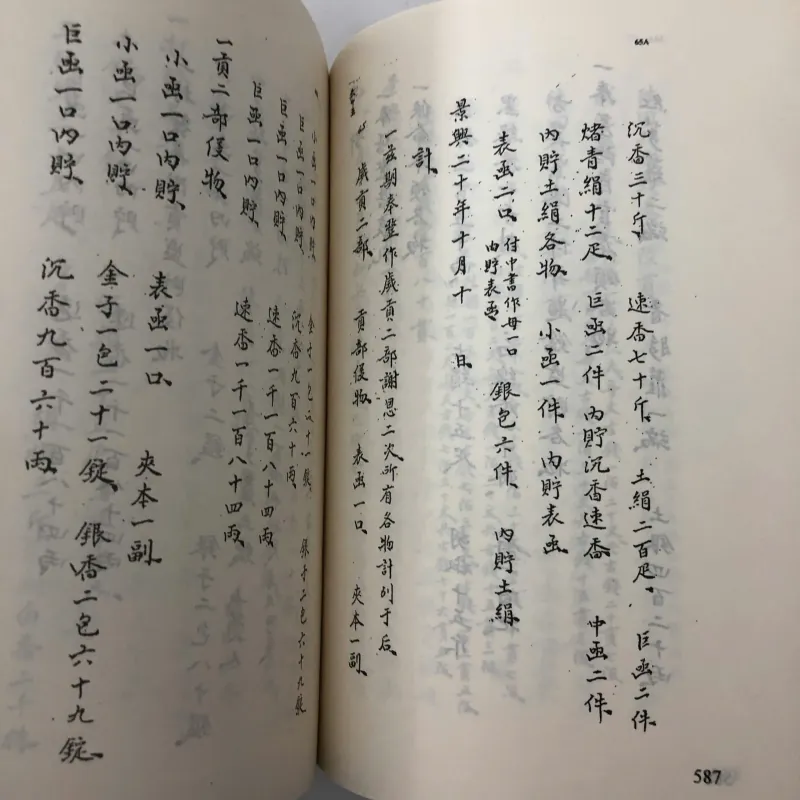 65A
沉香三十斤、 速香七十斤、 土絹二百疋、 巨函二件
烤青絹十二疋、 巨函二件 內貯沉香速香 中函二件、
內貯土絹各物、 小函一件、內貯表函
表函二口、付中書作每一口內貯表函 銀包六件、 內貯土絹、
景興二十年十月十 日、
計、
一茲期奉登作歲貢二部謝恩二次所有各物計列于后、
歲貢二部、 貢部侵物、 表函一口、 夾本一副、
小函一口內貯、 金子一包二十一錠、 銀子二包六十九錠
巨函一口內貯、 沉香九百六十兩、
巨函一口內貯、 速香一千一百八十四兩、
巨函一口內貯、 速香一千一百八十四兩、
一貢二部侵物、
小函一口內貯、 表函一口、 夾本一副
小函一口內貯、 金子一包二十一錠、 銀香二包六十九錠、
巨函一口內貯、 沉香九百六十兩、
587